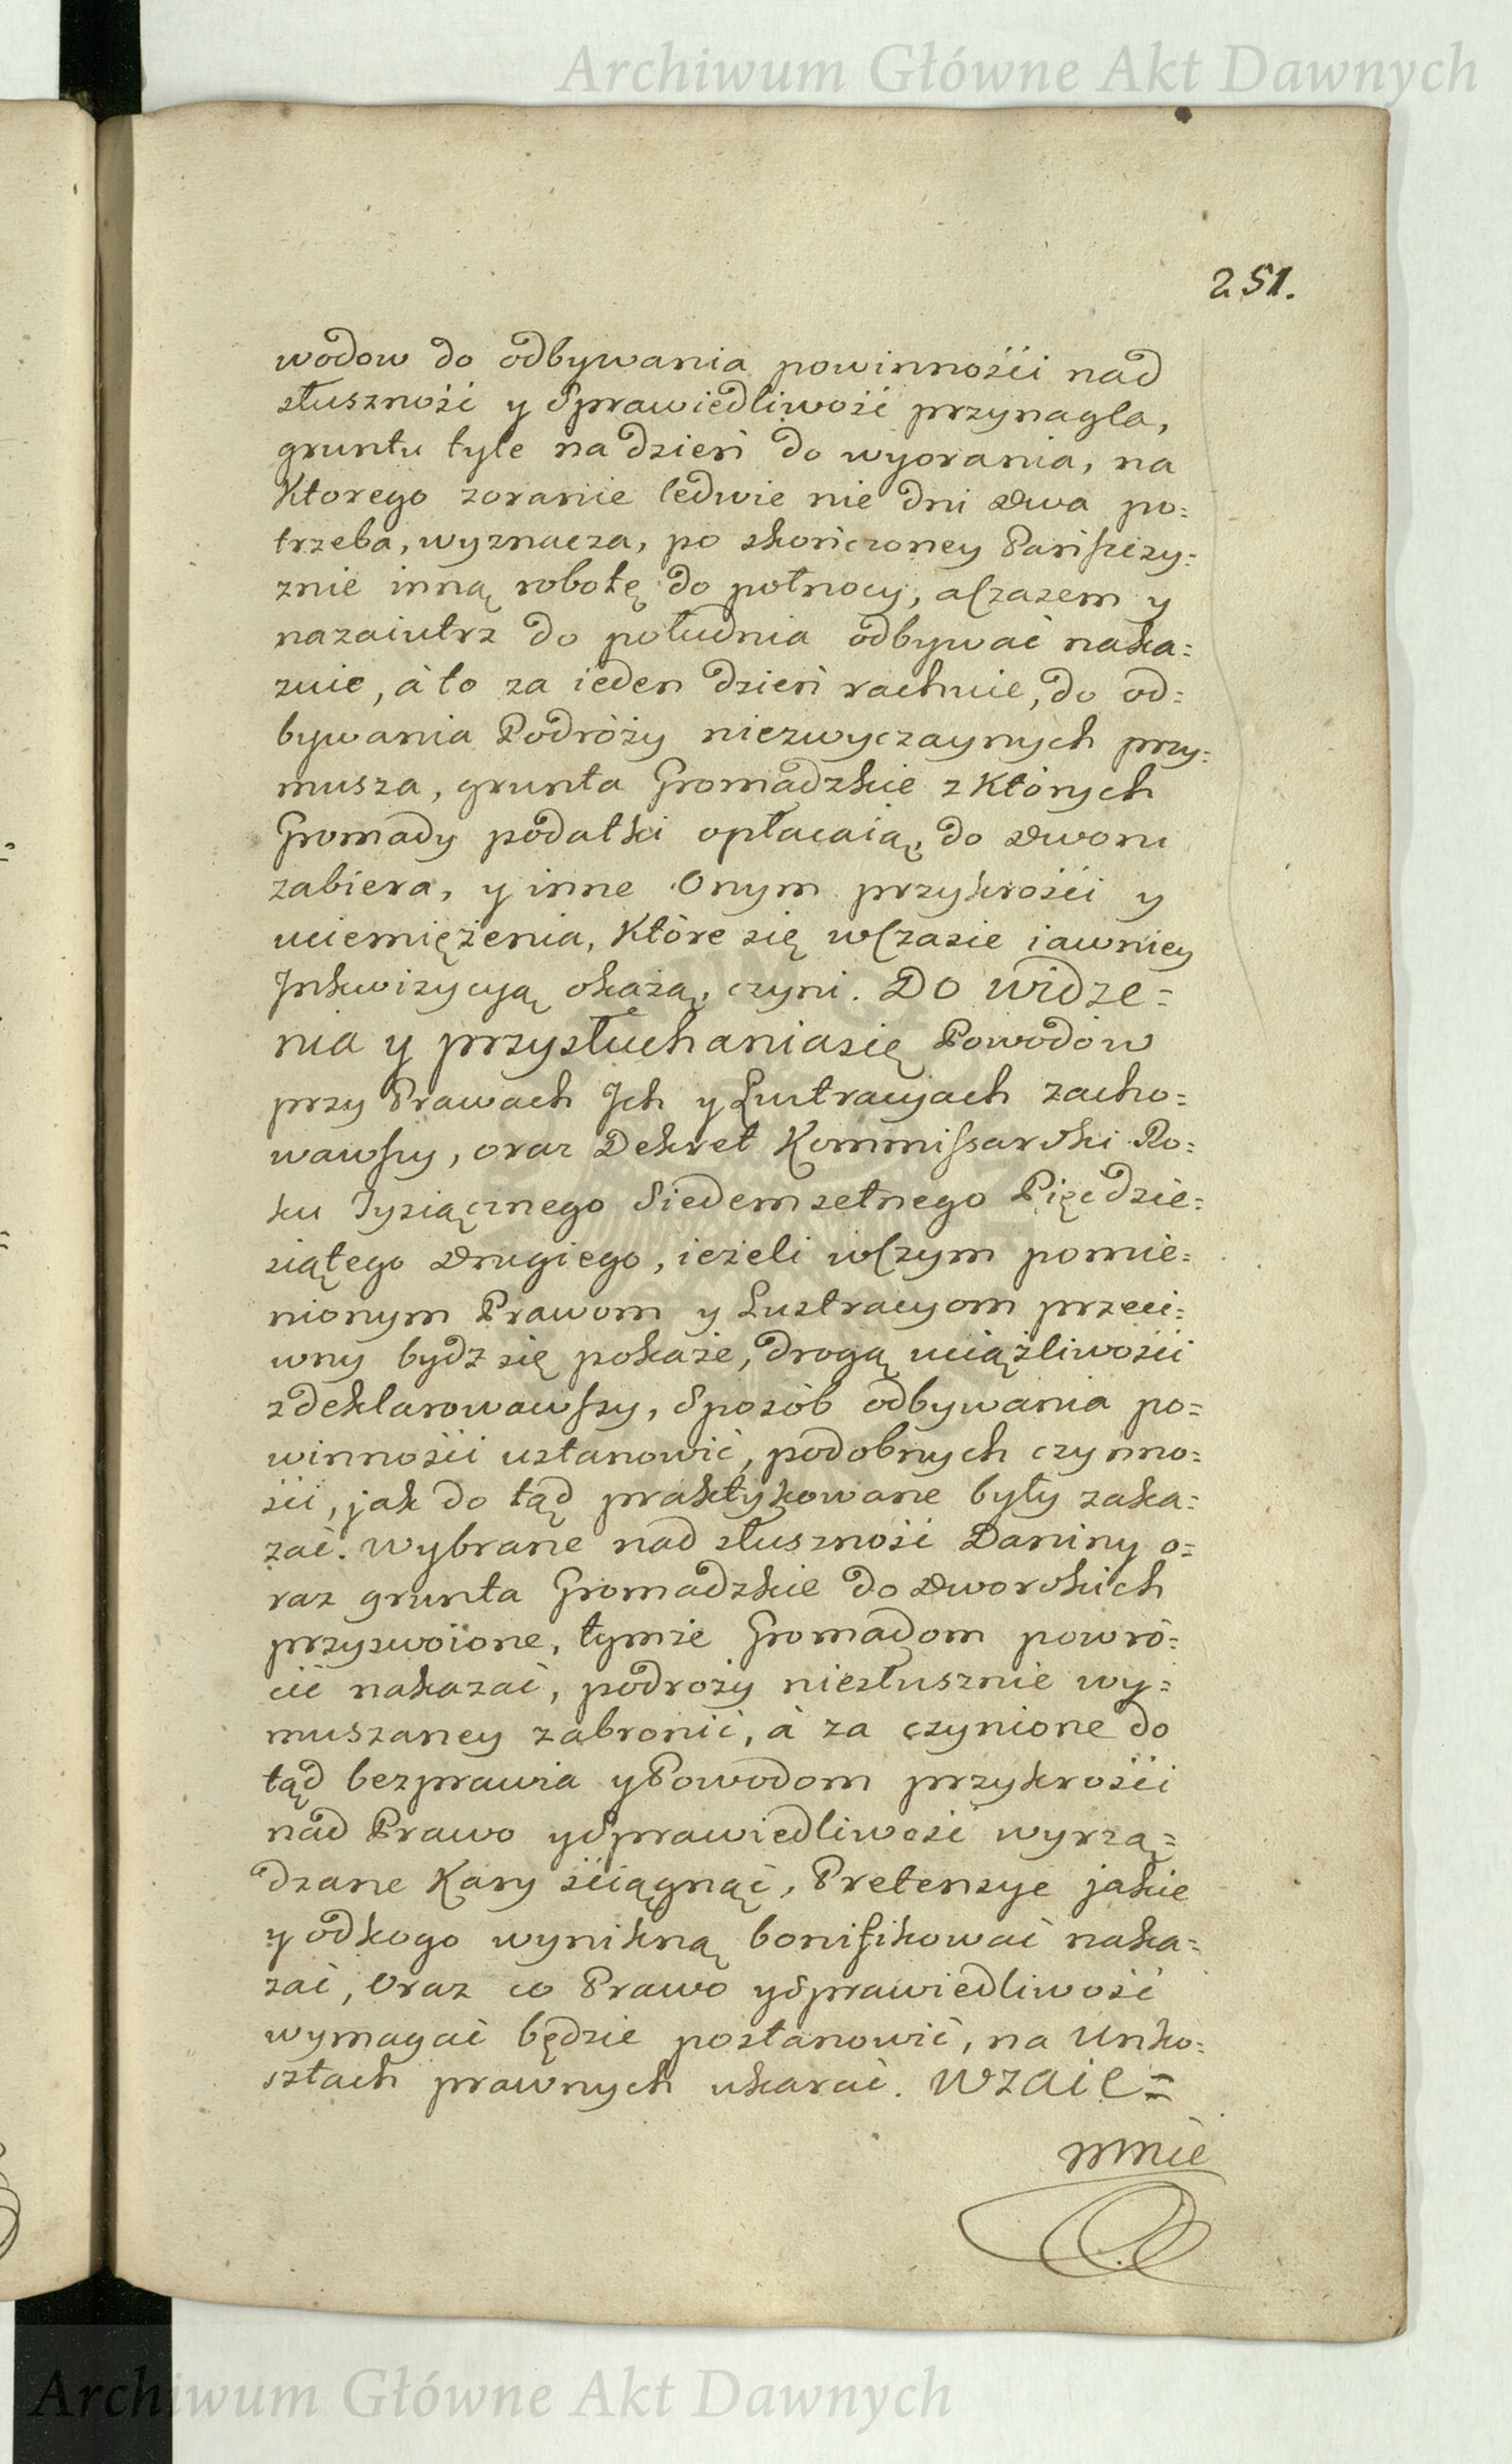 Archiwum Główne Akt Dawnych
251.
wodow do odbywania powinnośći nad
słuszność y Sprawiedliwość przynagla,
gruntu tyle na dzień do wyorania, na
Ktorego zoranie ledwie nie dni dwa po=
trzeba, wyznacza, po skończoney Pańszczy=
znie inną robotę do połnocy, aczasem y
nazaiutrz do południa odbywać naka=
zuie, à to za ieden dzień rachuie, do od=
bywania Podróży niezwyczaynych przy=
musza, grunta Gromadzkie z Których
Gromady podatki opłacaią, do dworu
zabiera, y inne Onym przykrośći y
uciemiężenia, Które się wczasie iawniey
Inkwizycyą okażą, czyni. Do widze=
nia y przysłuchaniasię Powodów
przy Prawach Ich y Lustracyach zacho=
wawszy, oraz Dekret Kommissarski Ro=
ku Tysiącznego Siedemsetnego Pięćdzie=
siątego drugiego, ieżeli wczym pomie=
nionym Prawom y Lustracyom przeci=
wny bydz się pokaże, drogą uciążliwośći
zdeklarowawszy, Sposób odbywania po=
winnośći ustanowić, podobnych czynno=
śći, jak do tąd praktykowane były zaka=
zać. Wybrane nad słuszność Daniny o=
raz grunta Gromadzkie do dworskich
przyswoione, tymże Gromadom powró=
cić nakazać, podroży niesłusznie wy=
muszaney zabronić, à za czynione do
tąd bezprawia y Powodom przykrośći
nad Prawo y Sprawiedliwość wyrzą=
dzane Kary śćiągnąć, Pretensye jakie
y odkogo wynikną bonifikować naka=
zać, Oraz co Prawo y Sprawiedliwość
wymagać będzie postanowić, na Unko=
sztach prawnych ukarać. Wzaie=
mnie
Archiwum Główne Akt Dawnych